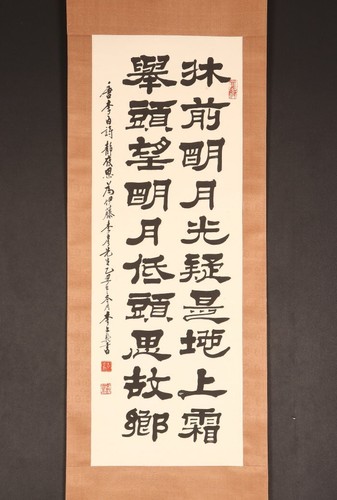 牀前明月光疑是地上霜
舉頭望明月低頭思故鄉
唐李白詩靜夜思為伊藤先生乙丑書